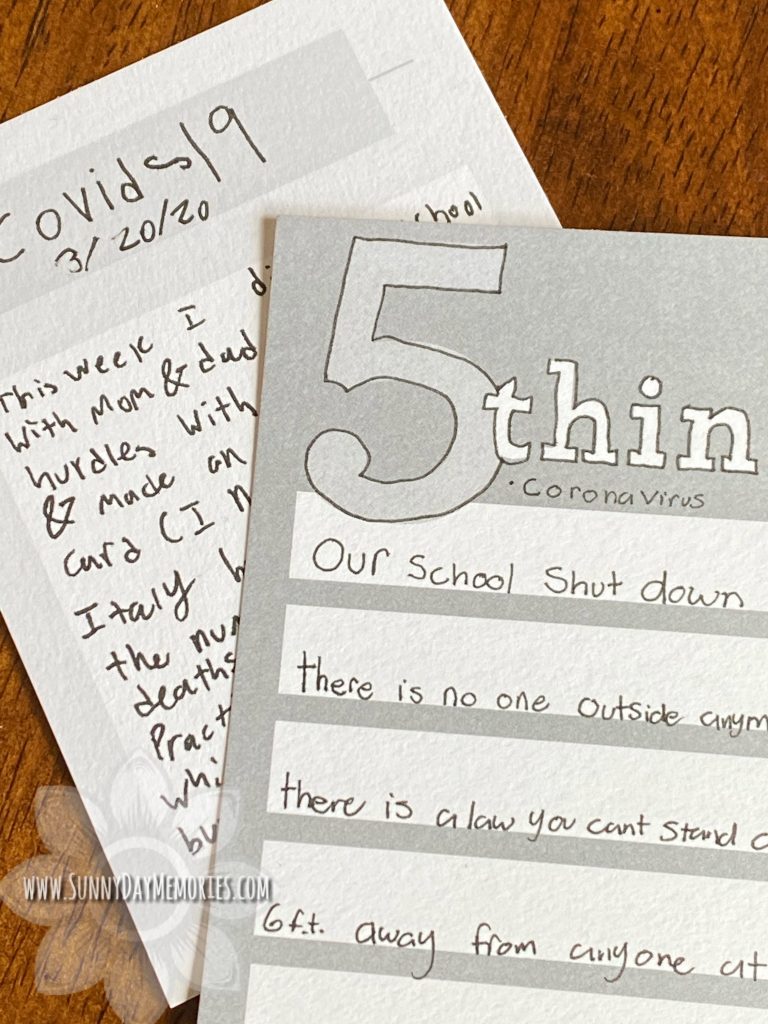 Covids19
3/20/20
This week I di
chool
with Mom & dad
hurdles with
& made an
card (I n
Italy h
the num
deaths
Pract
whi
bu
5 thin
• Coronavirus
Our School Shut down
there is no one outside anym
there is a law you cant stand c
6f.t. away from anyone at
www.SunnyDayMemories.com